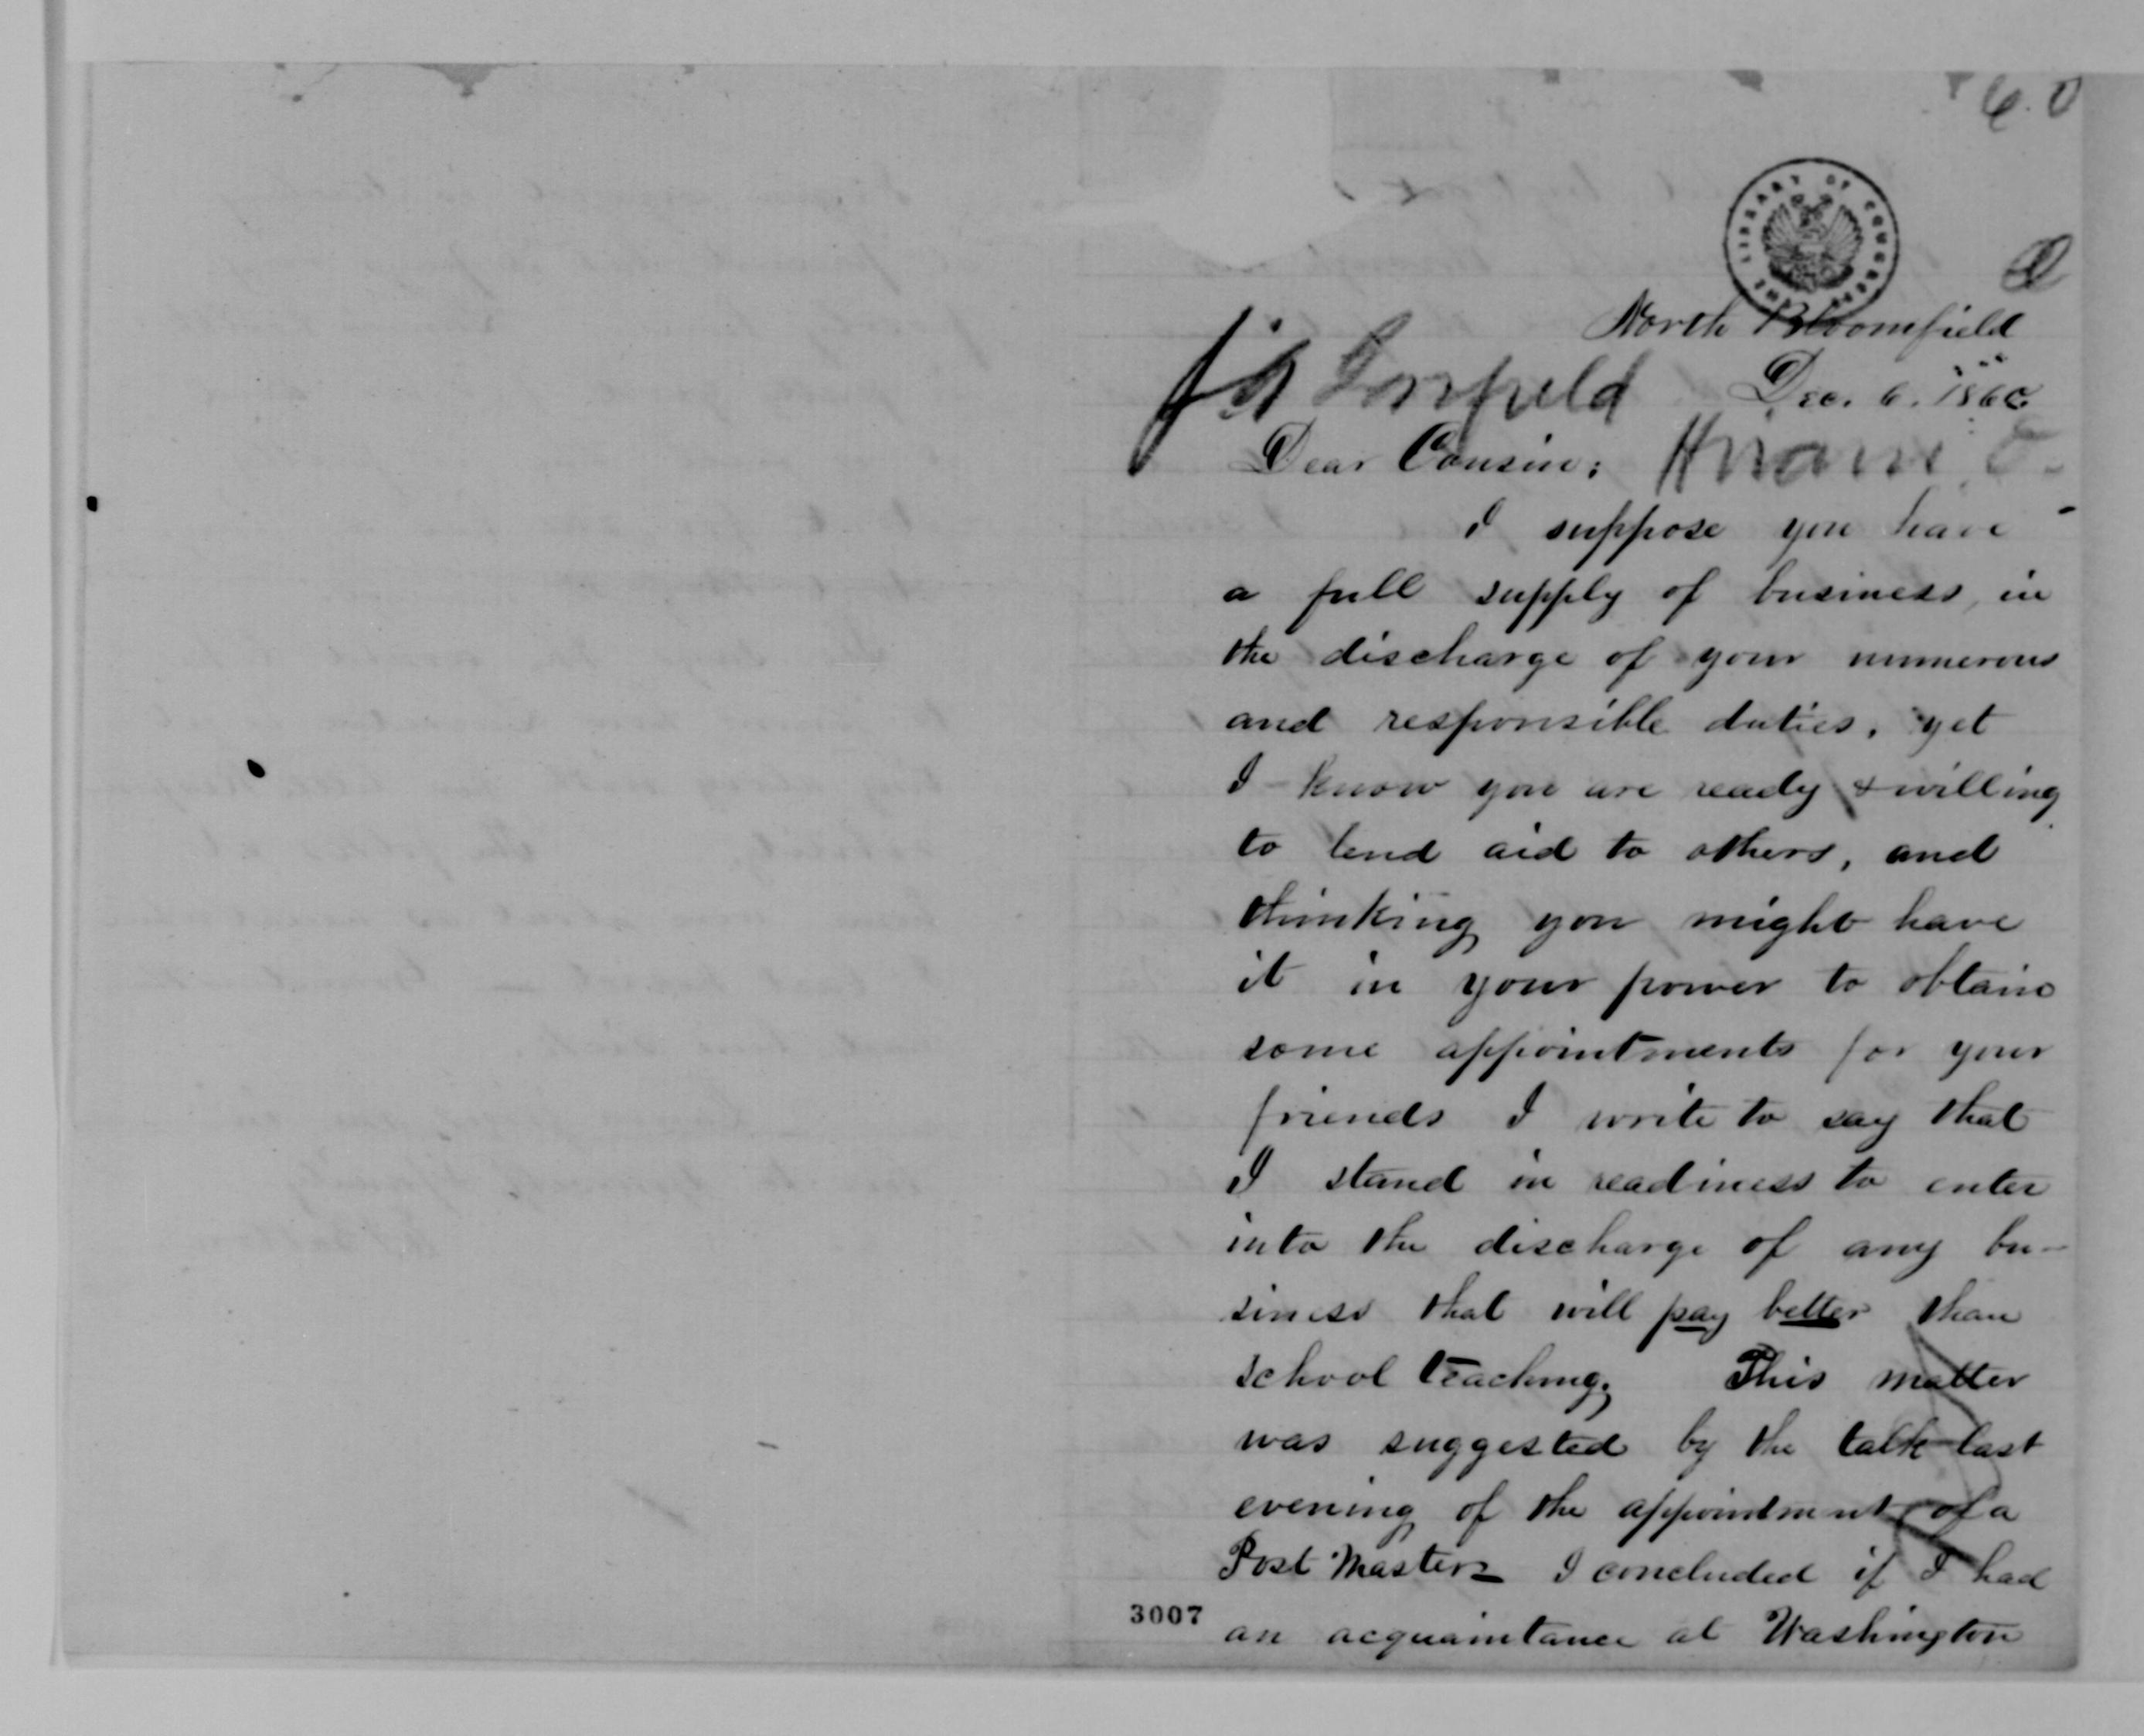 6.0
THE LIBRARY OF CONGRESS
North Bloomfield
J A Garfield
Dec. 6. 1860
Dear Cousin; Hiram, O.
I suppose you have
a full supply of business, in
the discharge of your numerous
and responsible duties, yet
I know you are ready & willing
to lend aid to others, and
thinking you might have
it in your power to obtain
some appointments for your
friends I write to say that
I stand in readiness to enter
into the discharge of any bu-
siness that will pay better than
school teaching. This matter
was suggested by the talk last
evening of the appointment of a
Post Master I concluded if I had
3007
an acquaintance at Washington